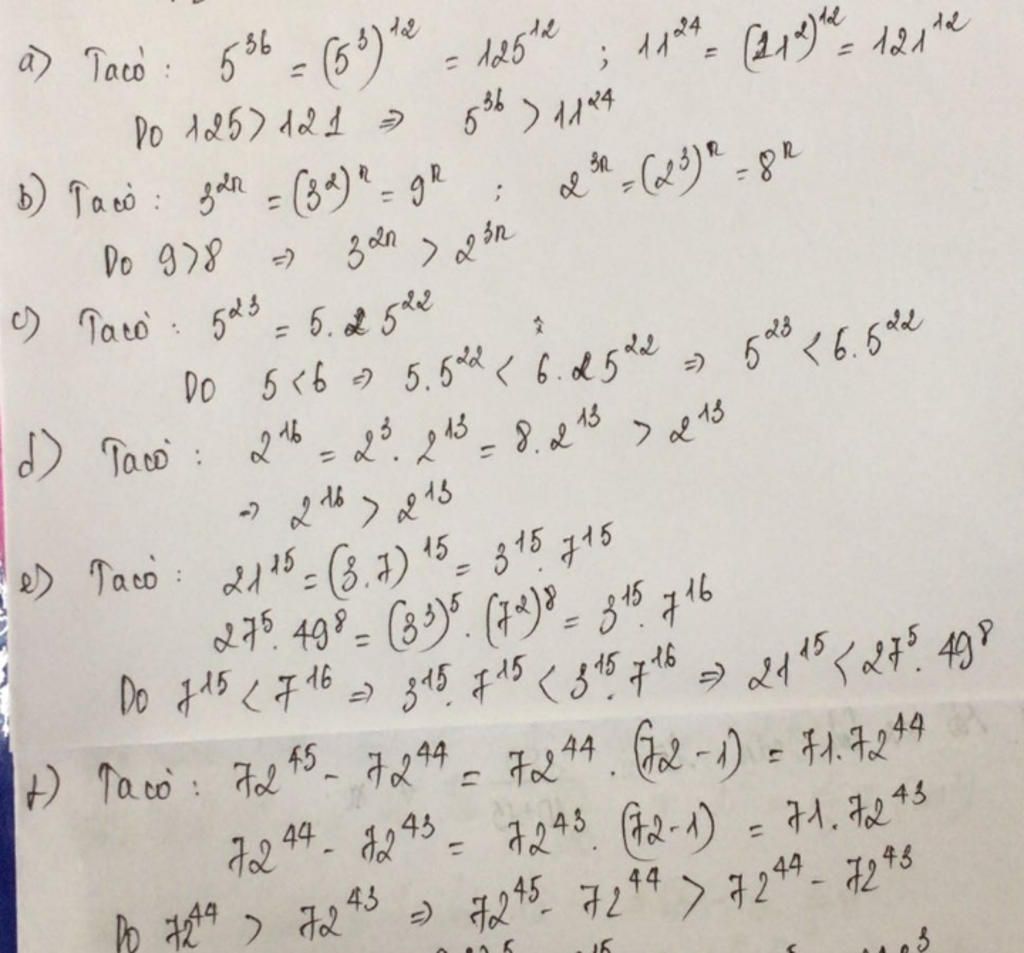 a) Ta có : 5³⁶ = (5³)¹² = 125¹² ; 11²⁴ = (11²)¹² = 121¹²
Do 125 > 121 ⇒ 5³⁶ > 11²⁴
b) Ta có : 3²ⁿ = (3²)ⁿ = 9ⁿ ; 2³ⁿ = (2³)ⁿ = 8ⁿ
Do 9 > 8 ⇒ 3²ⁿ > 2³ⁿ
c) Ta có : 5²³ = 5. 5²²
Do 5 < 6 ⇒ 5. 5²² < 6. 5²² ⇒ 5²³ < 6. 5²²
d) Ta có : 2¹⁶ = 2³. 2¹³ = 8. 2¹³ > 2¹³
⇒ 2¹⁶ > 2¹³
e) Ta có : 21¹⁵ = (3.7)¹⁵ = 3¹⁵. 7¹⁵
27⁵. 49⁸ = (3³)⁵. (7²)⁸ = 3¹⁵. 7¹⁶
Do 7¹⁵ < 7¹⁶ ⇒ 3¹⁵. 7¹⁵ < 3¹⁵. 7¹⁶ ⇒ 21¹⁵ < 27⁵. 49⁸
f) Ta có : 72⁴⁵ - 72⁴⁴ = 72⁴⁴. (72 - 1) = 71. 72⁴⁴
72⁴⁴ - 72⁴³ = 72⁴³. (72 - 1) = 71. 72⁴³
Do 72⁴⁴ > 72⁴³ ⇒ 72⁴⁵ - 72⁴⁴ > 72⁴⁴ - 72⁴³